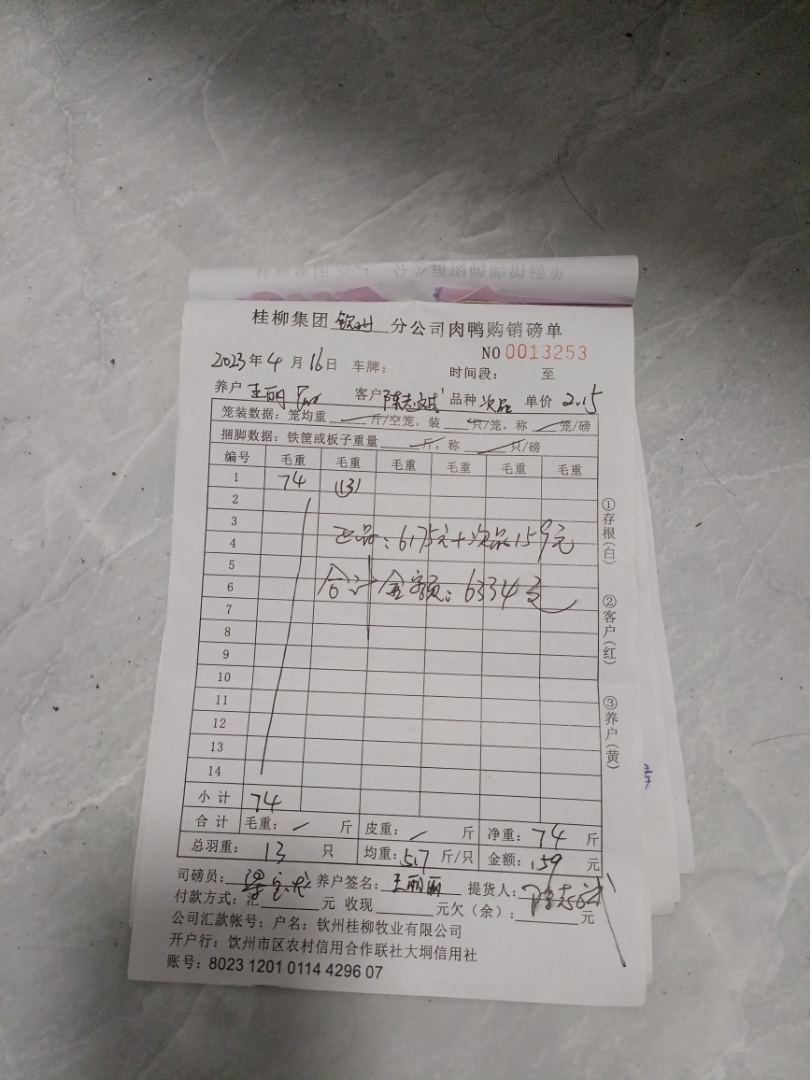 桂柳集团 钦州 分公司肉鸭购销磅单
NO 0013253
2023年4月16日 车牌: 时间段: 至
养户 王丽 客户 陈志斌 品种 次品 单价 2.15
笼装数据:笼均重 斤/空笼,装 只/笼,称 笼/磅
捆脚数据:铁筐或板子重量 斤,称 只/磅
编号 毛重 毛重 毛重 毛重 毛重 毛重
1 74 (13)
2
3
4 正品:6175元+次品159元
5
6 合计金额:6334元
7
8
9
10
11
12
13
14
小计 74
合计 毛重: 斤 皮重: 斤 净重:74 斤
总羽重: 13 只 均重:5.7 斤/只 金额:159 元
司磅员: 养户签名:王丽丽 提货人:陈志斌
付款方式:汇 元 收现 元欠(余): 元
公司汇款帐号:户名:钦州桂柳牧业有限公司
开户行:钦州市区农村信用合作联社大垌信用社
账号:8023 1201 0114 4296 07
①存根(白)
②客户(红)
③养户(黄)